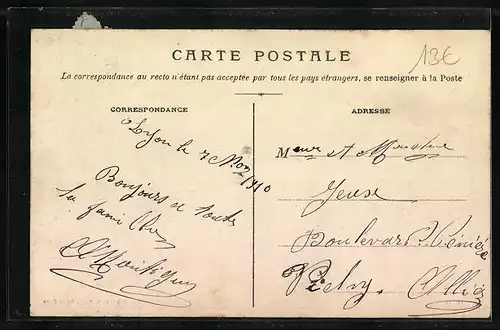 CARTE POSTALE
13€
La correspondance au recto n'étant pas acceptée par tous les pays étrangers, se renseigner à la Poste
CORRESPONDANCE
ADRESSE
Lyon le 7 Nov
1910
Bonjours de toute
la famille
M et
Boulevard
Vichy. Allier